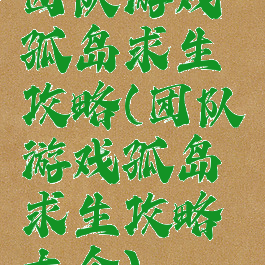 团队游戏
孤岛求生
攻略(团队
游戏孤岛
求生攻略
大全)